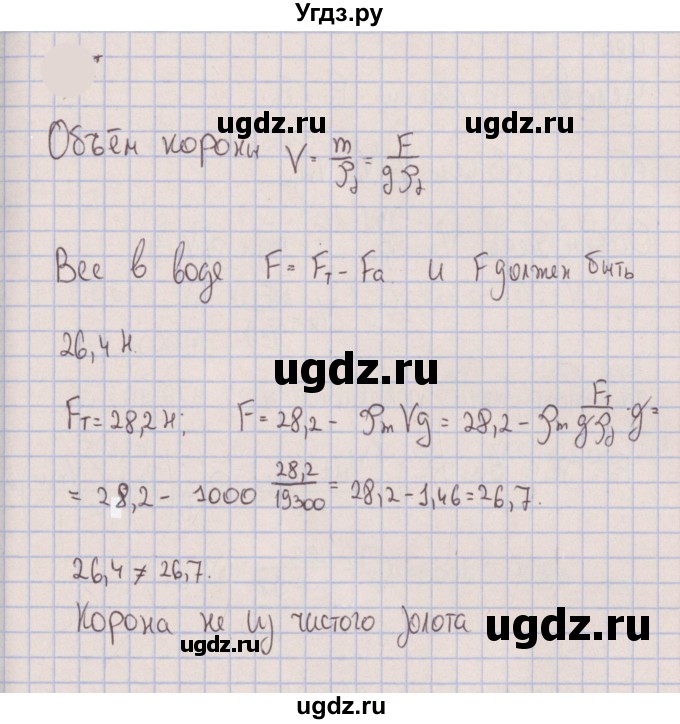 Угдз.ру
ugdz.ru ugdz.ru
Объём короны V = m/ρ₂ = F/gρ₂
Вес в воде F = Fт - Fa и F должен быть
26,4 Н.
ugdz.ru
Fт = 28,2 Н; F = 28,2 - ρm Vg = 28,2 - ρm Fт/gρ₂ · g =
= 28,2 - 1000 28,2/19300 = 28,2 - 1,46 = 26,7.
ugdz.ru
26,4 ≠ 26,7.
Корона не из чистого золота
ugdz.ru ugdz.ru
ugdz.ru